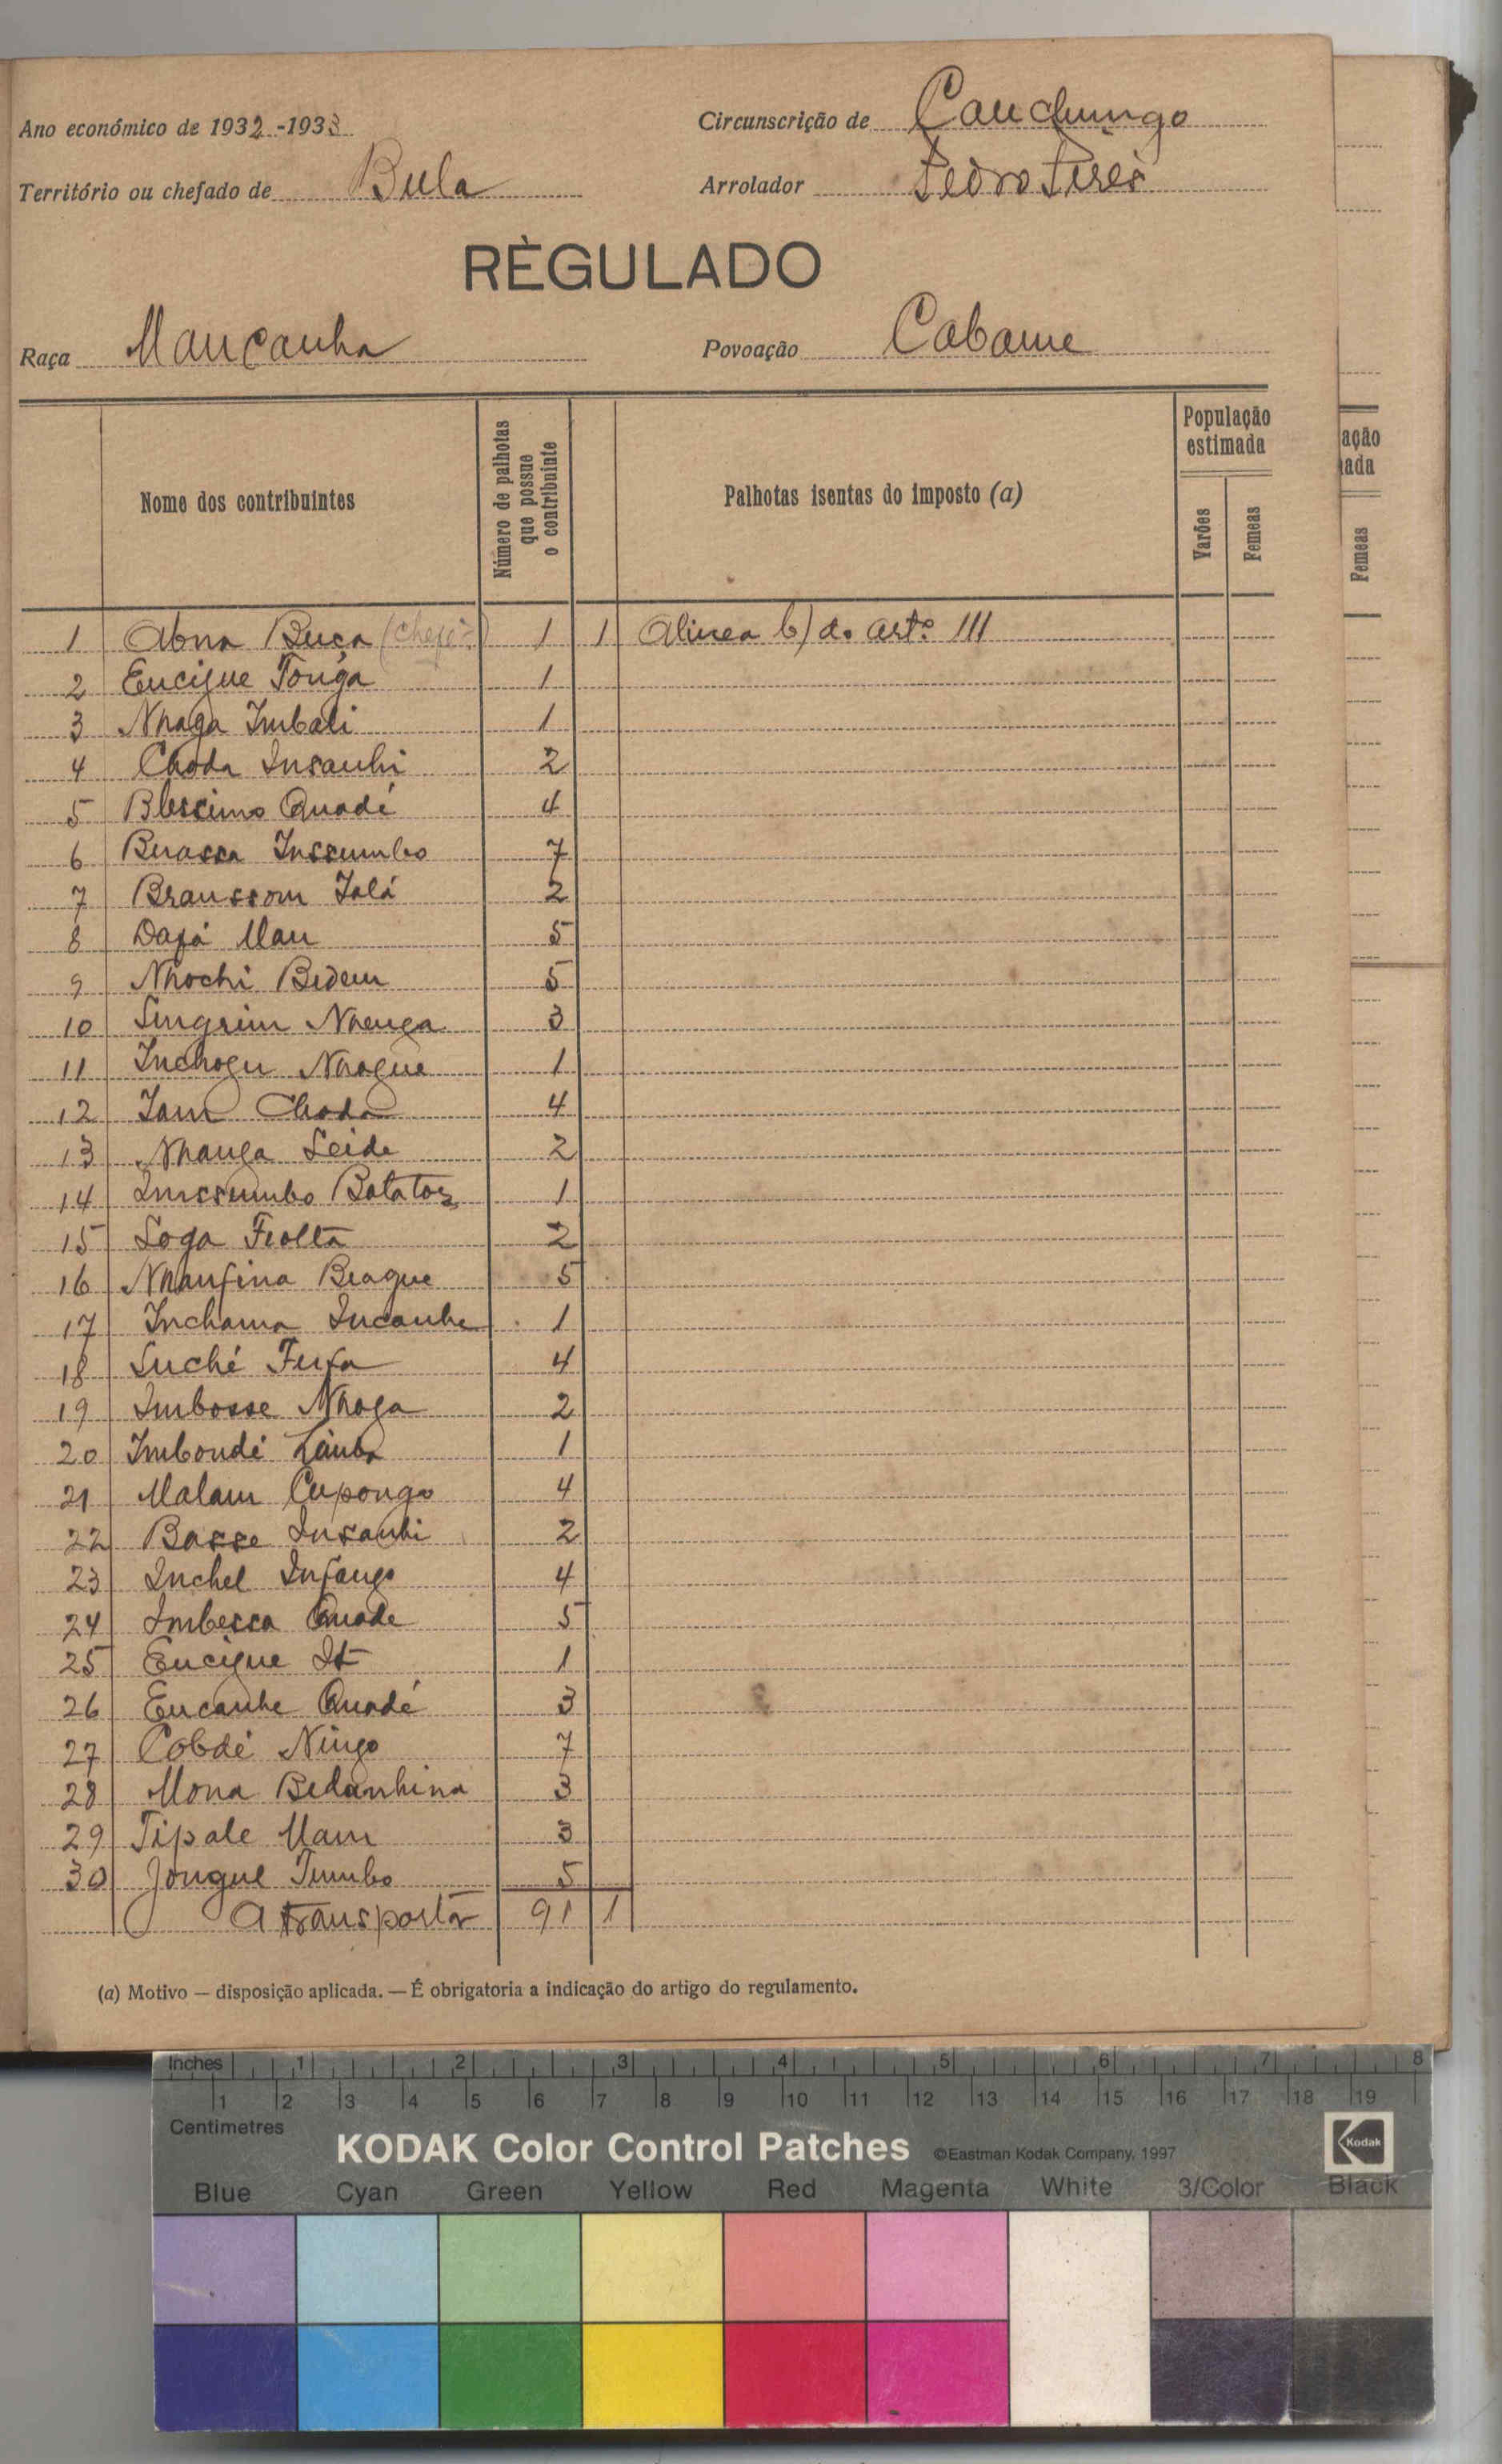 Ano económico de 1932-1933
Circunscrição de Canchungo
Território ou chefado de Bula
Arrolador Pedro Pires
RÈGULADO
Raça Mancanha
Povoação Cabame
Nome dos contribuintes
Número de palhotas que possue o contribuinte
Palhotas isentas do imposto (a)
População estimada
Varões
Femeas
ação
ada
Femeas
1 Abna Buça (Chefe) 1 1 Alinea b) do artº 111
2 Encique Tonga 1
3 Nhaga Imbali 1
4 Choda Insanhi 2
5 Blessimo Quadé 4
6 Buassa Inssumbo 7
7 Braussom Jalá 2
8 Dafá Mau 5
9 Nhochi Bidem 5
10 Singrim Nhenga 3
11 Inchogu Nhague 1
12 Jam Choda 4
13 Nhanga Seide 2
14 Inssumbo Batatoz 1
15 Soga Fiolta 2
16 Nhanfina Biague 5
17 Inchama Incanhe 1
18 Suché Fufa 4
19 Imbosse Nhaga 2
20 Imbondé 1
21 Malam Cupongo 4
22 Basse Insanhi 2
23 Inchel Infango 4
24 Imbessa Quade 5
25 Encique It 1
26 Encanhe Quadé 3
27 Cobdé Ningo 7
28 Mona Bidanhina 3
29 Tipale Mam 3
30 Jongue Tumbo 5
A transportar 91 1
(a) Motivo — disposição aplicada. — É obrigatoria a indicação do artigo do regulamento.
Inches 1 2 3 4 5 6 7 8
1 2 3 4 5 6 7 8 9 10 11 12 13 14 15 16 17 18 19
Centimetres
KODAK Color Control Patches ©Eastman Kodak Company, 1997 Kodak
Blue Cyan Green Yellow Red Magenta White 3/Color Black